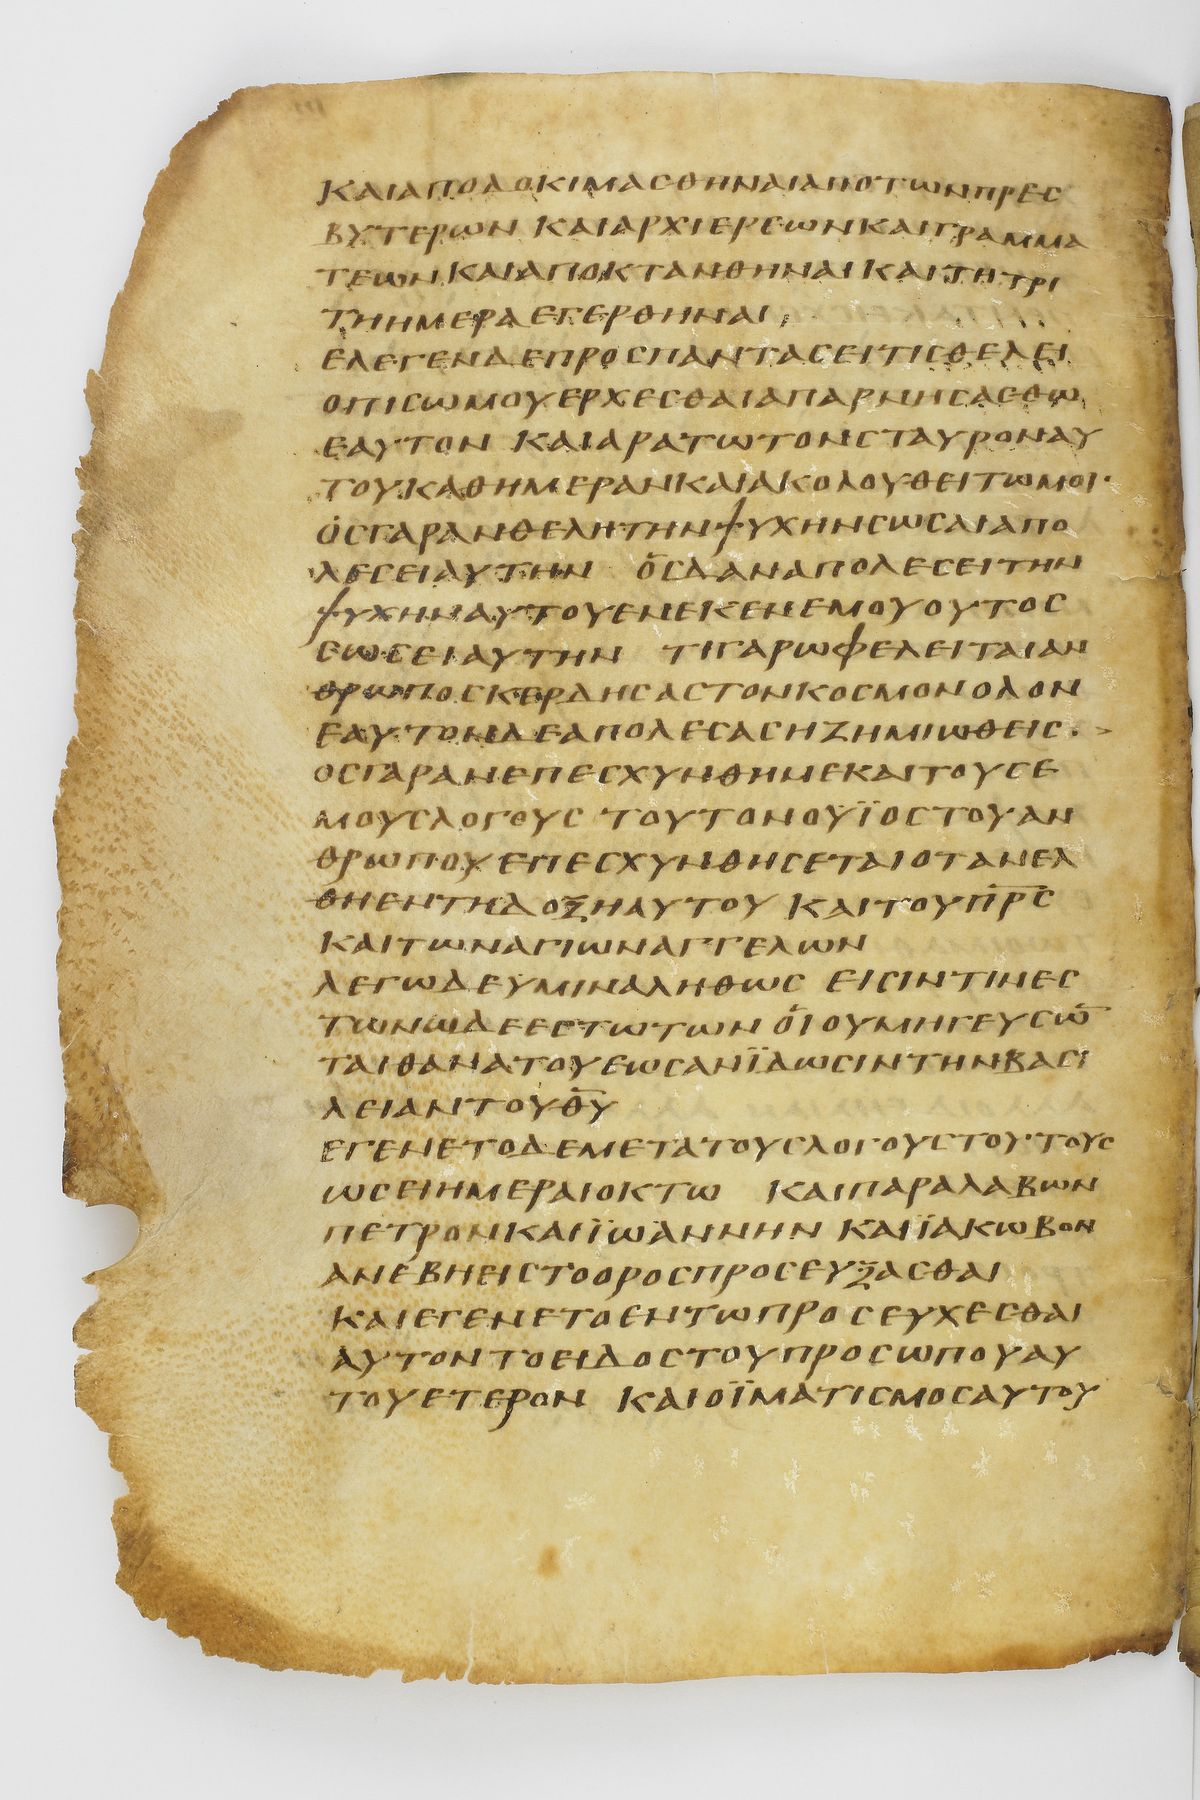 ΚΑΙΑΠΟΔΟΚΙΜΑΣΘΗΝΑΙΑΠΟΤΩΝΠΡΕΣ
ΒΥΤΕΡΩΝ ΚΑΙΑΡΧΙΕΡΕΩΝΚΑΙΓΡΑΜΜΑ
ΤΕΩΝΚΑΙΑΠΟΚΤΑΝΘΗΝΑΙΚΑΙΤΗΤΡΙ
ΤΗΗΜΕΡΑΕΓΕΡΘΗΝΑΙ
ΕΛΕΓΕΝΔΕΠΡΟΣΠΑΝΤΑΣΕΙΤΙΣΘΕΛΕΙ
ΟΠΙΣΩΜΟΥΕΡΧΕΣΘΑΙΑΠΑΡΝΗΣΑΣΘΩ
ΕΑΥΤΟΝ ΚΑΙΑΡΑΤΩΤΟΝΣΤΑΥΡΟΝΑΥ
ΤΟΥΚΑΘΗΜΕΡΑΝΚΑΙΑΚΟΛΟΥΘΕΙΤΩΜΟΙ·
ΟΣΓΑΡΑΝΘΕΛΗΤΗΝΨΥΧΗΝΣΩΣΑΙΑΠΟ
ΛΕΣΕΙΑΥΤΗΝ ΟΣΔΑΝΑΠΟΛΕΣΕΙΤΗΝ
ΨΥΧΗΝΑΥΤΟΥΕΝΕΚΕΝΕΜΟΥΟΥΤΟΣ
ΣΩΣΕΙΑΥΤΗΝ ΤΙΓΑΡΩΦΕΛΕΙΤΑΙΑΝ
ΘΡΩΠΟΣΚΕΡΔΗΣΑΣΤΟΝΚΟΣΜΟΝΟΛΟΝ
ΕΑΥΤΟΝΔΕΑΠΟΛΕΣΑΣΗΖΗΜΙΩΘΕΙΣ·
ΟΣΓΑΡΑΝΕΠΕΣΧΥΝΘΗΜΕΚΑΙΤΟΥΣΕ
ΜΟΥΣΛΟΓΟΥΣ ΤΟΥΤΟΝΟΥΪΟΣΤΟΥΑΝ
ΘΡΩΠΟΥΕΠΕΣΧΥΝΘΗΣΕΤΑΙΟΤΑΝΕΛ
ΘΗΕΝΤΗΔΟΞΗΑΥΤΟΥ ΚΑΙΤΟΥΠ̅Ρ̅Σ̅
ΚΑΙΤΩΝΑΓΙΩΝΑΓΓΕΛΩΝ
ΛΕΓΩΔΕΥΜΙΝΑΛΗΘΩΣ ΕΙΣΙΝΤΙΝΕΣ
ΤΩΝΩΔΕΕΣΤΩΤΩΝ ΟΙΟΥΜΗΓΕΥΣΩ̅
ΤΑΙΘΑΝΑΤΟΥΕΩΣΑΝΪΔΩΣΙΝΤΗΝΒΑΣΙ
ΛΕΙΑΝΤΟΥΘ̅Υ̅
ΕΓΕΝΕΤΟΔΕΜΕΤΑΤΟΥΣΛΟΓΟΥΣΤΟΥΤΟΥΣ
ΩΣΕΙΗΜΕΡΑΙΟΚΤΩ ΚΑΙΠΑΡΑΛΑΒΩΝ
ΠΕΤΡΟΝΚΑΙΪΩΑΝΝΗΝ ΚΑΙΪΑΚΩΒΟΝ
ΑΝΕΒΗΕΙΣΤΟΟΡΟΣΠΡΟΣΕΥΞΑΣΘΑΙ
ΚΑΙΕΓΕΝΕΤΟΕΝΤΩΠΡΟΣΕΥΧΕΣΘΑΙ
ΑΥΤΟΝΤΟΕΙΔΟΣΤΟΥΠΡΟΣΩΠΟΥΑΥ
ΤΟΥΕΤΕΡΟΝ ΚΑΙΟΪΜΑΤΙΣΜΟΣΑΥΤΟΥ